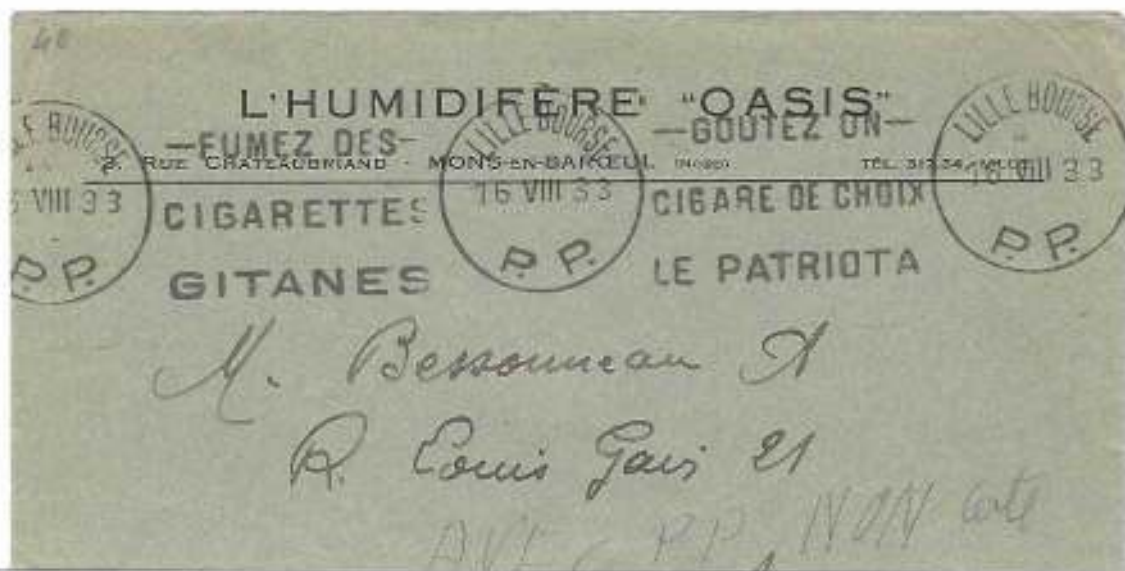 48
L'HUMIDIFÈRE "OASIS"
3, RUE CHATEAUBRIAND - MONS-EN-BARŒUL (NORD) TÉL.
LILLE BOURSE
16 VIII 33
P.P.
—FUMEZ DES—
CIGARETTES
GITANES
LILLE BOURSE
16 VIII 33
P.P.
—GOUTEZ UN—
CIGARE DE CHOIX
LE PATRIOTA
LILLE BOURSE
16 VIII 33
P.P.
M. Bessonneau A
R. Louis Gain 21
PP NON